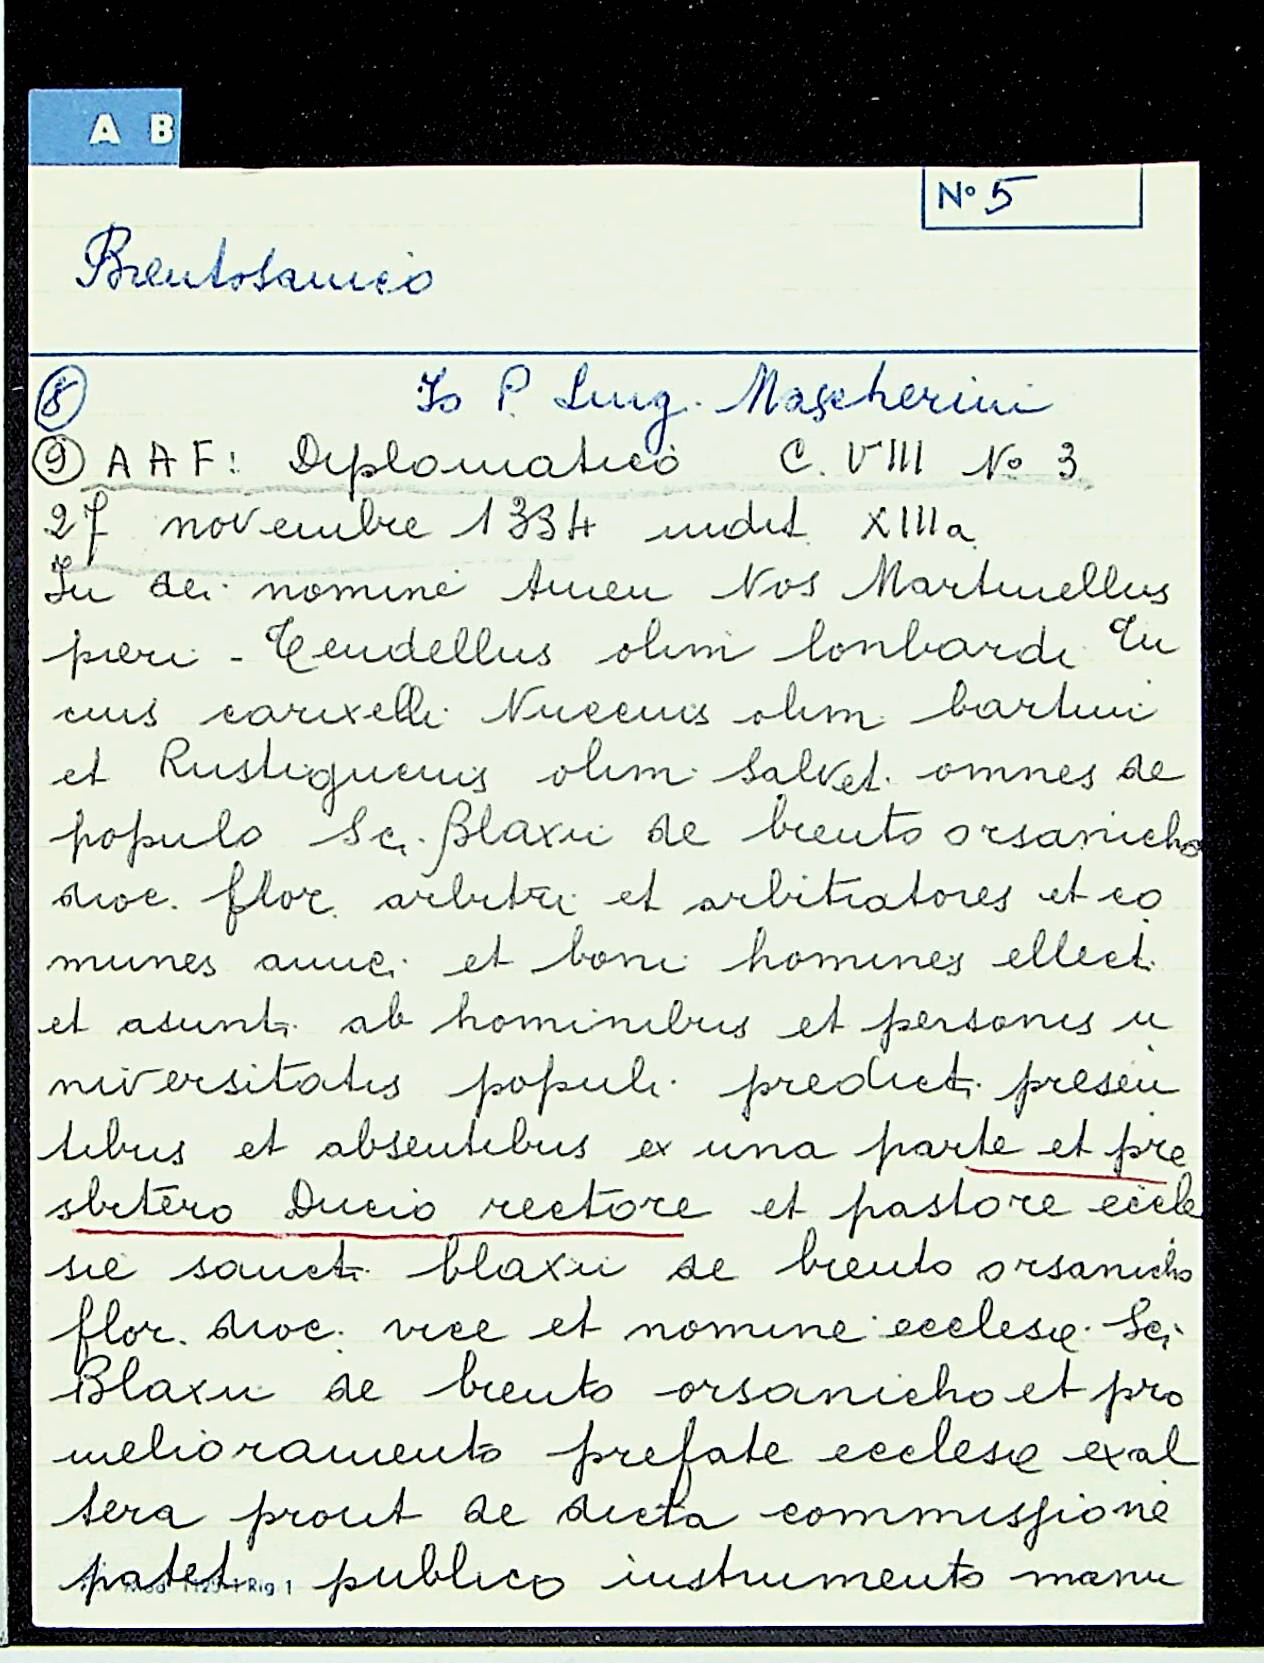 A B
N° 5
Brentosanico
8 Io P. Luig. Mascherini
9 A A F: Diplomatico C. VIII No 3
27 novembre 1334 indit XIIIa
In dei nomine Amen Nos Martinellus
pieri - Cendellus olim lonbardi Cu
cius carixelli Nuccius olim bartini
et Rustiguccius olim Salvet. omnes de
populo Sci. Blaxii de brento orsanicho
dioc. flor. arbitri et arbitratores et co
munes amici et boni homines ellecti
et asunti ab hominibus et personis u
niversitatis populi predicti presen
tibus et absentibus ex una parte et pre
sbitero Ducio rectore et pastore eccle
sie sancti blaxii de brento orsanicho
flor. dioc. vice et nomine ecclesie Sci
Blaxii de brento orsanicho et pro
melioramento prefate ecclesie ex al
tera prout de dicta commissione
patet publico instrumento manu